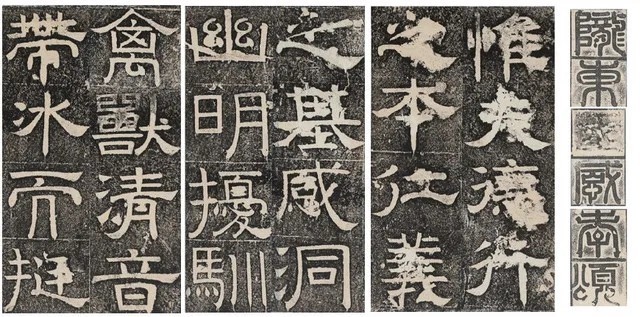 隴東
感孝頌
惟夫德行
之本仁義
之基感洞
幽明擾馴
禽獸清音
帶冰而挺